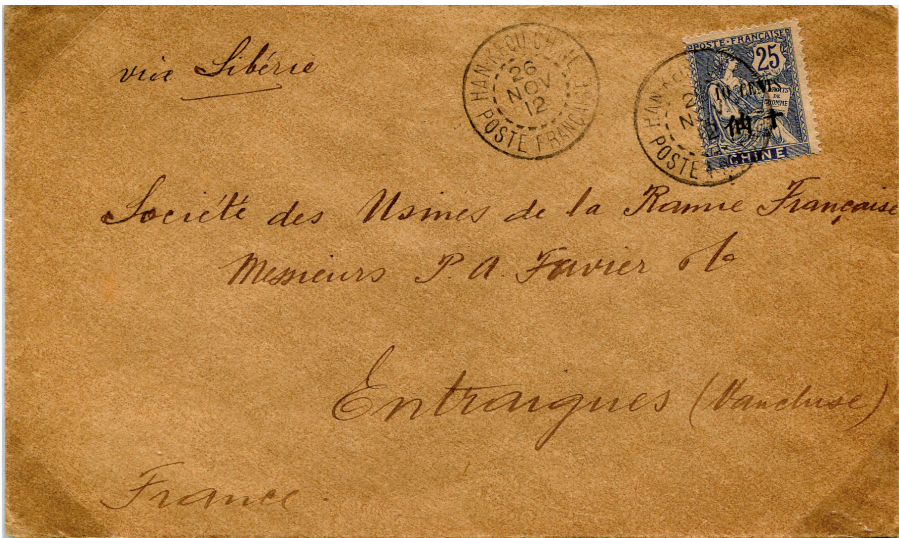 via Sibérie
HAN-KEOU CHINE
26
NOV
12
POSTE FRANÇAISE
POSTE FRANÇAISE
25
10 CENTS
DROITS
DE
HOMME
CHINE
HAN-KEOU
2
NOV
12
POSTE
Société des Usines de la Ramie Française
Messieurs P. A. Favier
Entraigues (Vaucluse)
France.